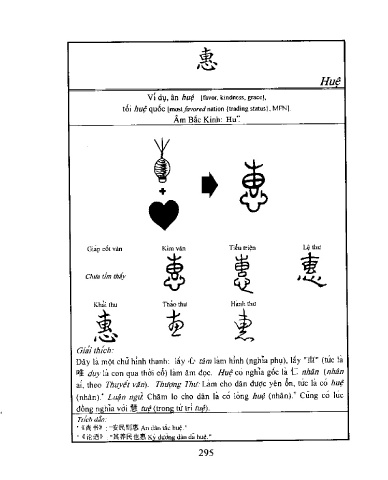 惠
Huệ
Ví dụ, ân huệ [favor, kindness, grace],
tối huệ quốc [most favored nation (trading status), MFN].
Âm Bắc Kinh: Hu
+
Giáp cốt văn Kim văn Tiểu triện Lệ thư
Chưa tìm thấy
Khải thư Thảo thư Hành thư
Giải thích:
Đây là một chữ hình thanh: lấy 心 tâm làm hình (nghĩa phụ), lấy (tức là
duy là con qua thời cổ) làm âm đọc. Huệ có nghĩa gốc là 仁 nhân (nhân
ái, theo Thuyết văn). Thượng Thư: Làm cho dân được yên ổn, tức là có huệ
(nhân).* Luận ngữ: Chăm lo cho dân là có lòng huệ (nhân).* Cũng có lúc
đồng nghĩa với 慧 tuệ (trong từ trí tuệ).
Trích dẫn:
《尚书》: "安民则惠 An dân tắc huệ."
《论语》: "其养民也惠 Kỳ dưỡng dân dã huệ."
295